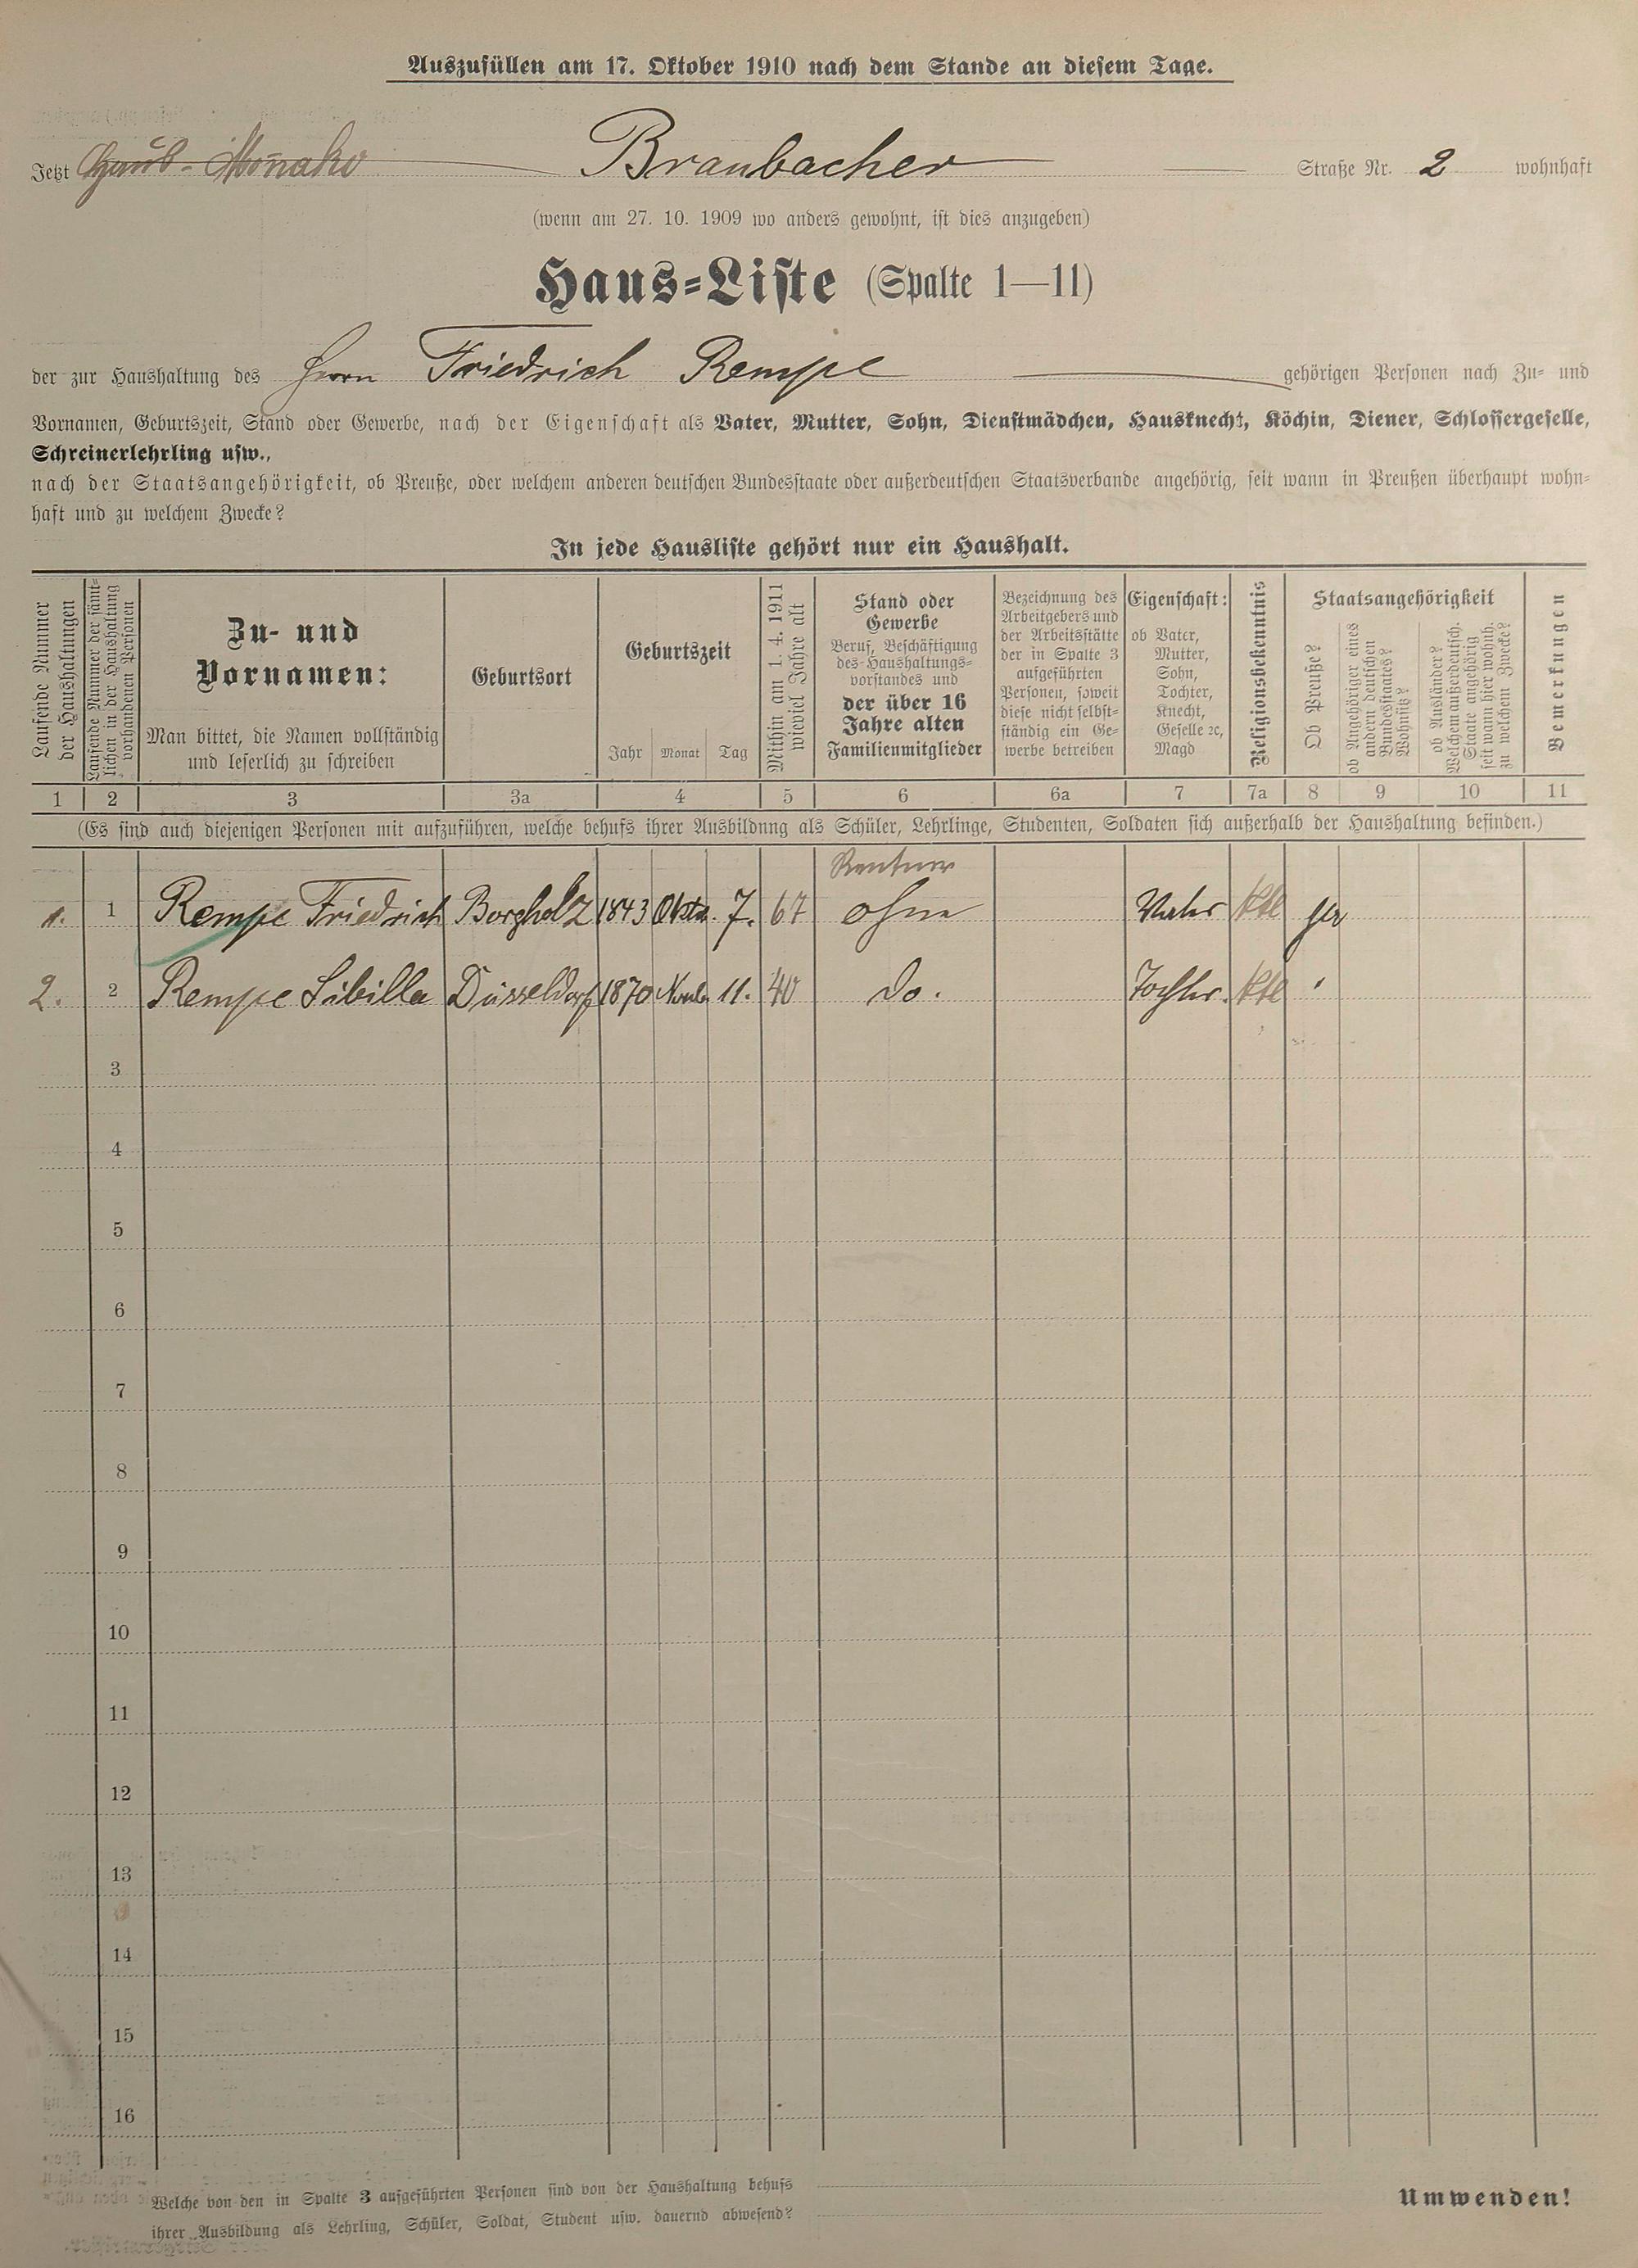 Auszufüllen am 17. Oktober 1910 nach dem Stande an diesem Tage.
Jetzt Haus-Monako Braubacher Straße Nr. 2 wohnhaft
(wenn am 27. 10. 1909 wo anders gewohnt, ist dies anzugeben)
Haus-Liste (Spalte 1—11)
der zur Haushaltung des Herrn Friedrich Rempe gehörigen Personen nach Zu- und
Vornamen, Geburtszeit, Stand oder Gewerbe, nach der Eigenschaft als Vater, Mutter, Sohn, Dienstmädchen, Hausknecht, Köchin, Diener, Schlossergeselle,
Schreinerlehrling usw.,
nach der Staatsangehörigkeit, ob Preuße, oder welchem anderen deutschen Bundesstaate oder außerdeutschen Staatsverbande angehörig, seit wann in Preußen überhaupt wohn-
haft und zu welchem Zwecke?
In jede Hausliste gehört nur ein Haushalt.
Laufende Nummer
der Haushaltungen
Laufende Nummer der sämt-
lichen in der Haushaltung
vorhandenen Personen
Zu- und
Vornamen:
Man bittet, die Namen vollständig
und leserlich zu schreiben
Geburtsort
Geburtszeit
Jahr Monat Tag
Mithin am 1. 4. 1911
wieviel Jahre alt
Stand oder
Gewerbe
Beruf, Beschäftigung
des Haushaltungs-
vorstandes und
der über 16
Jahre alten
Familienmitglieder
Bezeichnung des
Arbeitgebers und
der Arbeitsstätte
der in Spalte 3
aufgeführten
Personen, soweit
diese nicht selbst-
ständig ein Ge-
werbe betreiben
Eigenschaft:
ob Vater,
Mutter,
Sohn,
Tochter,
Knecht,
Geselle ꝛc,
Magd
Religionsbekenntnis
Staatsangehörigkeit
Ob Preuße?
ob Angehöriger eines
andern deutschen
Bundesstaates?
Wohnsitz?
ob Ausländer?
Welchem außerdeutsch.
Staate angehörig
seit wann hier wohnh.
zu welchem Zwecke?
Bemerkungen
1 2 3 3a 4 5 6 6a 7 7a 8 9 10 11
(Es sind auch diejenigen Personen mit aufzuführen, welche behufs ihrer Ausbildung als Schüler, Lehrlinge, Studenten, Soldaten sich außerhalb der Haushaltung befinden.)
Rentner
1. 1 Rempe Friedrich Borgholz 1843 Oktb. 7. 67 ohne Vater ktl ja
2. 2 Rempe Sibilla Düsseldorf 1870 Novb. 11. 40 do. Tochter. ktl "
3
4
5
6
7
8
9
10
11
12
13
14
15
16
Welche von den in Spalte 3 aufgeführten Personen sind von der Haushaltung behufs
ihrer Ausbildung als Lehrling, Schüler, Soldat, Student usw. dauernd abwesend?
Umwenden!